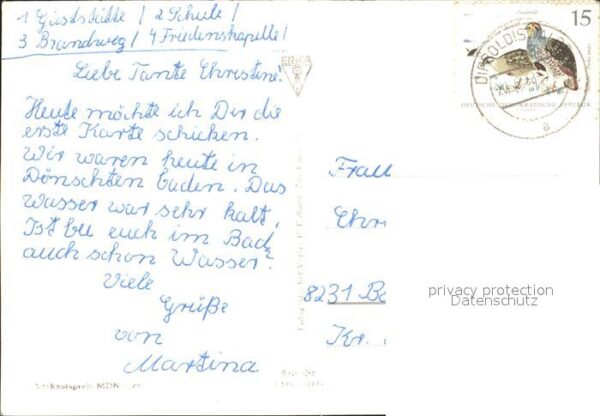 1 Gaststätte / 2 Schule /
3 Brandweg / 4 Friedenskapelle /
Liebe Tante Christine!
Heute möchte ich Dir die
erste Karte schicken.
Wir waren heute in
Dönschten baden. Das
Wasser war sehr kalt,
Ist bei euch im Bad
auch schon Wasser?
Viele
Grüße
von
Martina
Verkaufspreis MDN
15
DIPPOLDIS
a
DEUTSCHE DEMOKRATISCHE REPUBLIK
Frau
Chr
8231 Be
Kr.
privacy protection
Datenschutz